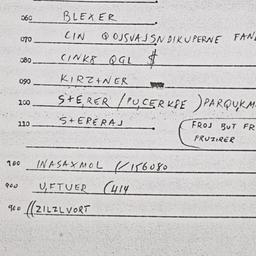 060 BLEXER
070 CIN QOJSVAJSNDIKUPERNE FAN
080 CINKS QGL $
090 KIRZTNER
100 STERER / PUCERKSE ) PARQUKM
110 STEPERAJ
FROJ BUT FR
PRUZIRER
INASAXMOL (/156080
900 UFTUER (414
ZILZLVORT